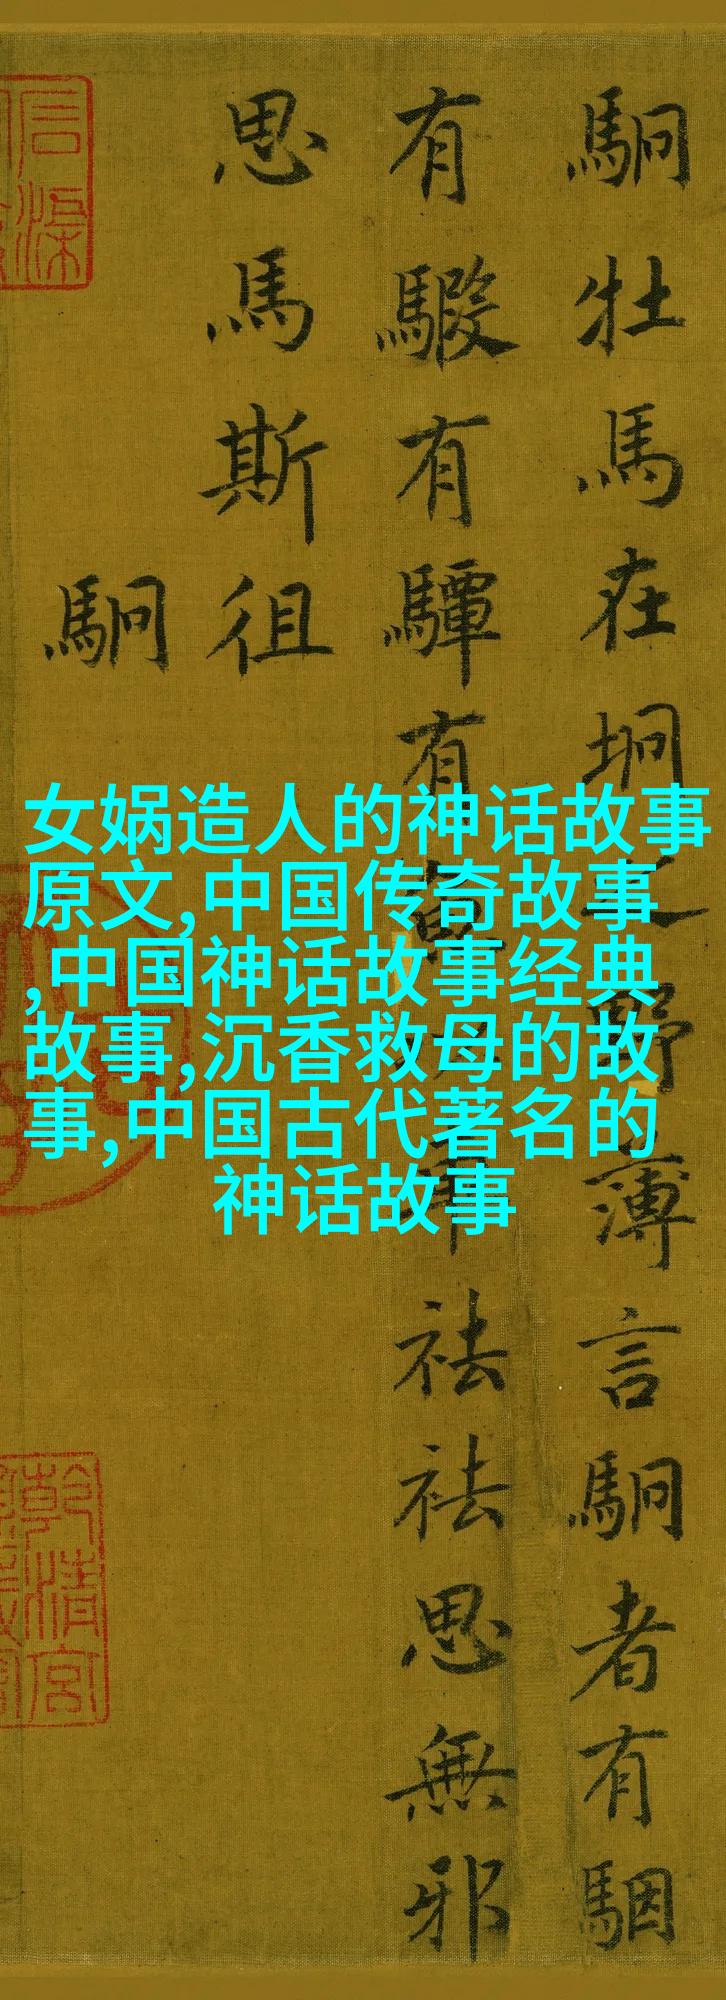 駉牡馬在坰之野薄言駉者有駰
有騢有驔有魚以車祛祛思無邪
思馬斯徂
駉
女娲造人的神话故事
原文,中国传奇故事
,中国神话故事经典
故事,沉香救母的故
事,中国古代著名的
神话故事
乾清宮